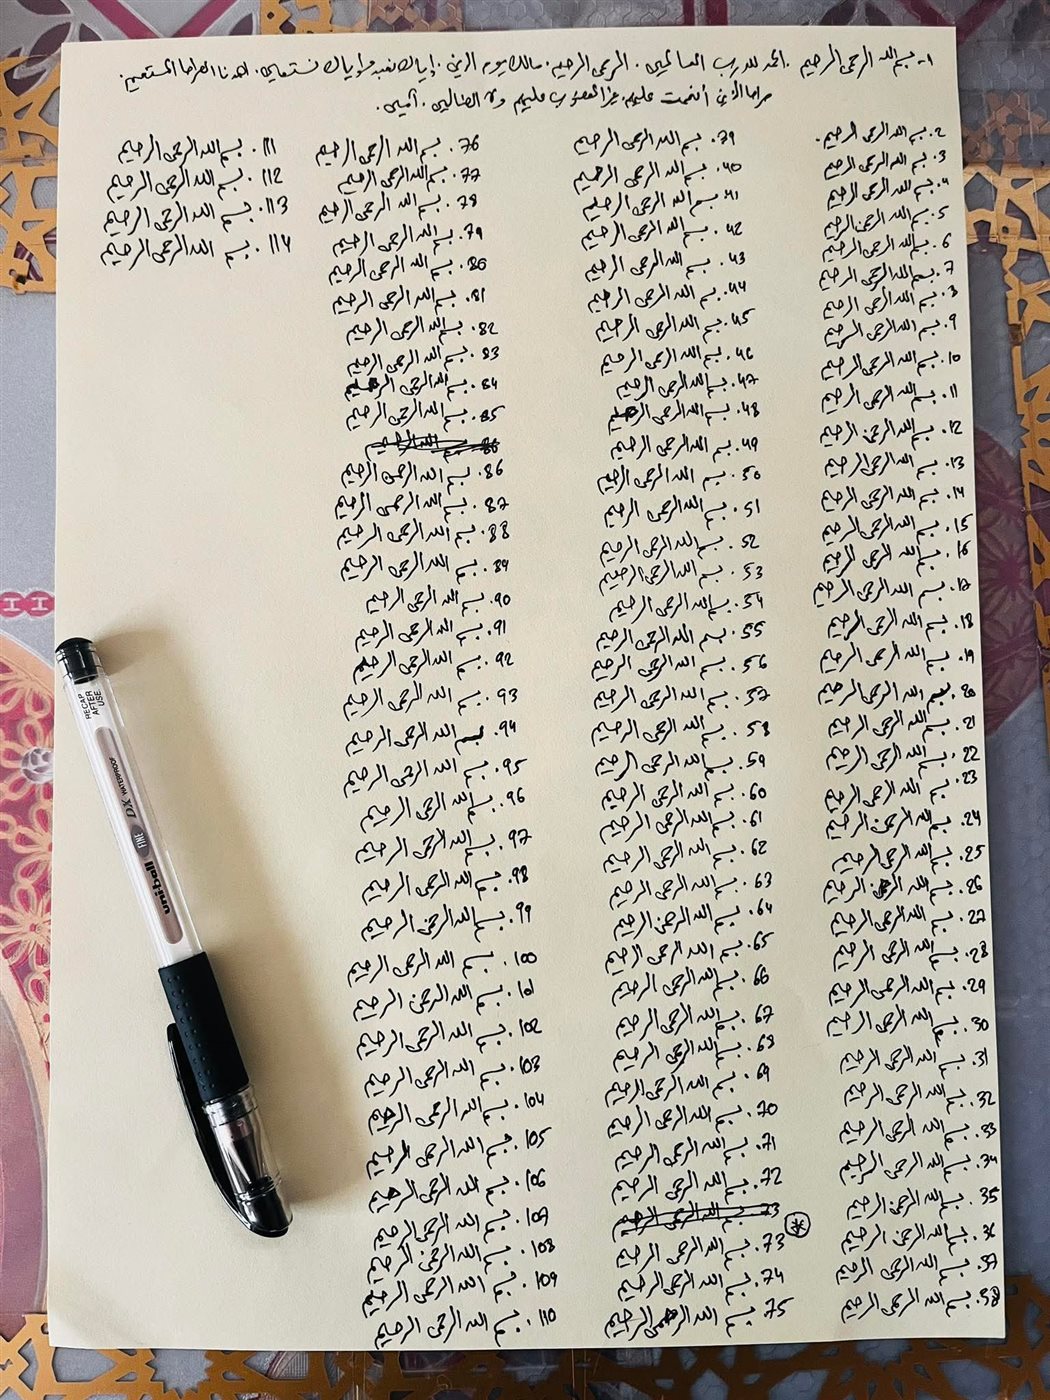 1- بسم الله الرحمن الرحيم . الحمد لله رب العالمين . الرحمن الرحيم . مالك يوم الدين . إياك نعبد و إياك نستعين . اهدنا الصراط المستقيم .
صراط الذين أنعمت عليهم . غير المغضوب عليهم ولا الضالين . آمين .
2. بسم الله الرحمن الرحيم .
3. بسم الله الرحمن الرحيم
4. بسم الله الرحمن الرحيم
5. بسم الله الرحمن الرحيم
6. بسم الله الرحمن الرحيم
7. بسم الله الرحمن الرحيم
8. بسم الله الرحمن الرحيم
9. بسم الله الرحمن الرحيم
10. بسم الله الرحمن الرحيم
11. بسم الله الرحمن الرحيم
12. بسم الله الرحمن الرحيم
13. بسم الله الرحمن الرحيم
14. بسم الله الرحمن الرحيم
15. بسم الله الرحمن الرحيم
16. بسم الله الرحمن الرحيم
17. بسم الله الرحمن الرحيم
18. بسم الله الرحمن الرحيم
19. بسم الله الرحمن الرحيم
20. بسم الله الرحمن الرحيم
21. بسم الله الرحمن الرحيم
22. بسم الله الرحمن الرحيم
23. بسم الله الرحمن الرحيم
24. بسم الله الرحمن الرحيم
25. بسم الله الرحمن الرحيم
26. بسم الله الرحمن الرحيم
27. بسم الله الرحمن الرحيم
28. بسم الله الرحمن الرحيم
29. بسم الله الرحمن الرحيم
30. بسم الله الرحمن الرحيم
31. بسم الله الرحمن الرحيم
32. بسم الله الرحمن الرحيم
33. بسم الله الرحمن الرحيم
34. بسم الله الرحمن الرحيم
35. بسم الله الرحمن الرحيم
36. بسم الله الرحمن الرحيم
37. بسم الله الرحمن الرحيم
38. بسم الله الرحمن الرحيم
39. بسم الله الرحمن الرحيم
40. بسم الله الرحمن الرحيم
41. بسم الله الرحمن الرحيم
42. بسم الله الرحمن الرحيم
43. بسم الله الرحمن الرحيم
44. بسم الله الرحمن الرحيم
45. بسم الله الرحمن الرحيم
46. بسم الله الرحمن الرحيم
47. بسم الله الرحمن الرحيم
48. بسم الله الرحمن الرحيم
49. بسم الله الرحمن الرحيم
50. بسم الله الرحمن الرحيم
51. بسم الله الرحمن الرحيم
52. بسم الله الرحمن الرحيم
53. بسم الله الرحمن الرحيم
54. بسم الله الرحمن الرحيم
55. بسم الله الرحمن الرحيم
56. بسم الله الرحمن الرحيم
57. بسم الله الرحمن الرحيم
58. بسم الله الرحمن الرحيم
59. بسم الله الرحمن الرحيم
60. بسم الله الرحمن الرحيم
61. بسم الله الرحمن الرحيم
62. بسم الله الرحمن الرحيم
63. بسم الله الرحمن الرحيم
64. بسم الله الرحمن الرحيم
65. بسم الله الرحمن الرحيم
66. بسم الله الرحمن الرحيم
67. بسم الله الرحمن الرحيم
68. بسم الله الرحمن الرحيم
69. بسم الله الرحمن الرحيم
70. بسم الله الرحمن الرحيم
71. بسم الله الرحمن الرحيم
72. بسم الله الرحمن الرحيم
73 بسم الله الرحمن الرحيم
73. بسم الله الرحمن الرحيم
74. بسم الله الرحمن الرحيم
75. بسم الله الرحمن الرحيم
76. بسم الله الرحمن الرحيم
77. بسم الله الرحمن الرحيم
78. بسم الله الرحمن الرحيم
79. بسم الله الرحمن الرحيم
80. بسم الله الرحمن الرحيم
81. بسم الله الرحمن الرحيم
82. بسم الله الرحمن الرحيم
83. بسم الله الرحمن الرحيم
84. بسم الله الرحمن الرحيم
85. بسم الله الرحمن الرحيم
86 بسم الله الرحيم
86. بسم الله الرحمن الرحيم
87. بسم الله الرحمن الرحيم
88. بسم الله الرحمن الرحيم
89. بسم الله الرحمن الرحيم
90. بسم الله الرحمن الرحيم
91. بسم الله الرحمن الرحيم
92. بسم الله الرحمن الرحيم
93. بسم الله الرحمن الرحيم
94. بسم الله الرحمن الرحيم
95. بسم الله الرحمن الرحيم
96. بسم الله الرحمن الرحيم
97. بسم الله الرحمن الرحيم
98. بسم الله الرحمن الرحيم
99. بسم الله الرحمن الرحيم
100. بسم الله الرحمن الرحيم
101. بسم الله الرحمن الرحيم
102. بسم الله الرحمن الرحيم
103. بسم الله الرحمن الرحيم
104. بسم الله الرحمن الرحيم
105. بسم الله الرحمن الرحيم
106. بسم الله الرحمن الرحيم
107. بسم الله الرحمن الرحيم
108. بسم الله الرحمن الرحيم
109. بسم الله الرحمن الرحيم
110. بسم الله الرحمن الرحيم
111. بسم الله الرحمن الرحيم
112. بسم الله الرحمن الرحيم
113. بسم الله الرحمن الرحيم
114. بسم الله الرحمن الرحيم
RECAP
AFTER
USE
uni-ball FINE DX WATERPROOF